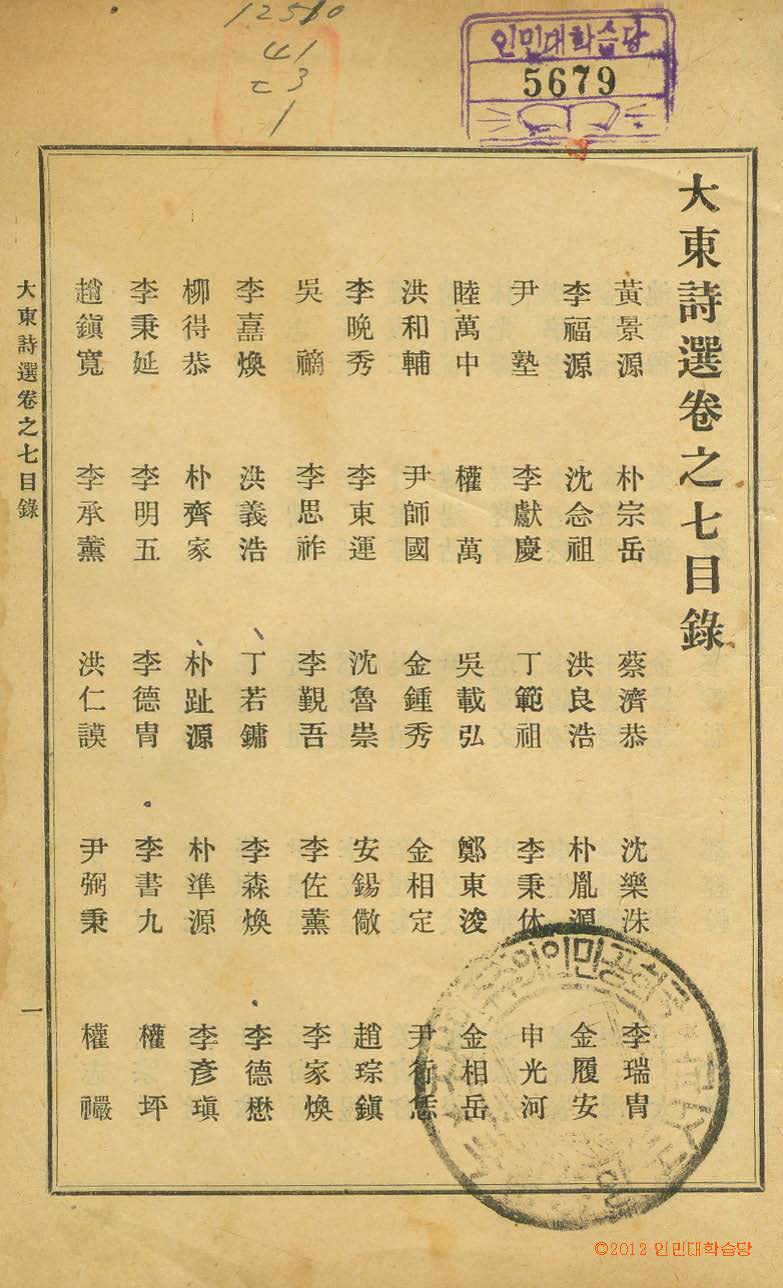 12510
41
ㄷ3
1
인민대학습당
5679
大東詩選卷之七目錄
黃景源 朴宗岳 蔡濟恭 沈樂洙 李瑞冑
李福源 沈念祖 洪良浩 朴胤源 金履安
尹塾 李獻慶 丁範祖 李秉休 申光河
睦萬中 權萬 吳載弘 鄭東浚 金相岳
洪和輔 尹師國 金鍾秀 金相定 尹行恁
李晩秀 李東運 沈魯崇 安錫儆 趙琮鎭
吳 李思祚 李觀吾 李佐薰 李家煥
李嘉煥 洪義浩 丁若鏞 李森煥 李德懋
柳得恭 朴齊家 朴趾源 朴準源 李彥瑱
李秉延 李明五 李德冑 李書九 權坪
趙鎭寬 李承薰 洪仁謨 尹弼秉 權
大東詩選卷之七目錄
一
주의인민공화국
©2012 인민대학습당